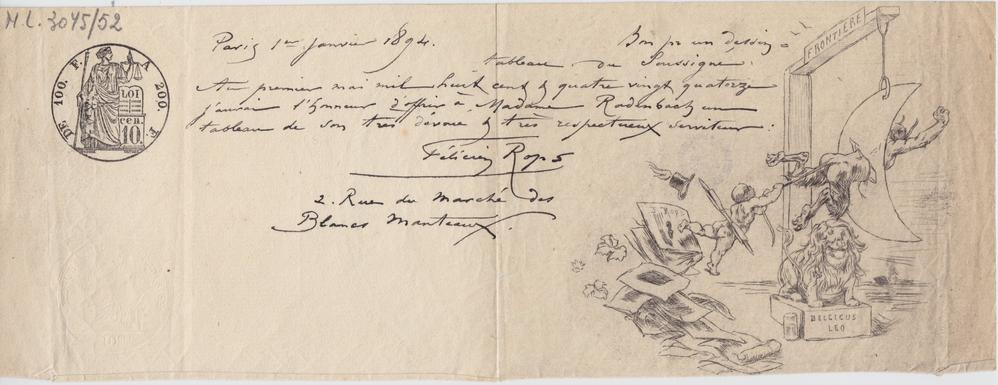 M.L. 3045/52
DE. 100. F. A 200. F
LOI
cen.
10
Paris 1er Janvier 1894.
Bon pr un dessin =
tableau du Soussigné.
Au premier mai mil huit cent & quatre vingt quatorze
j'aurai l'honneur d'offrir à Madame Rodenbach un
tableau de son très dévoué & très respectueux serviteur :
Félicien Rops
2. Rue du Marché des
Blancs Manteaux.
FRONTIÈRE
BELGICUS
LEO